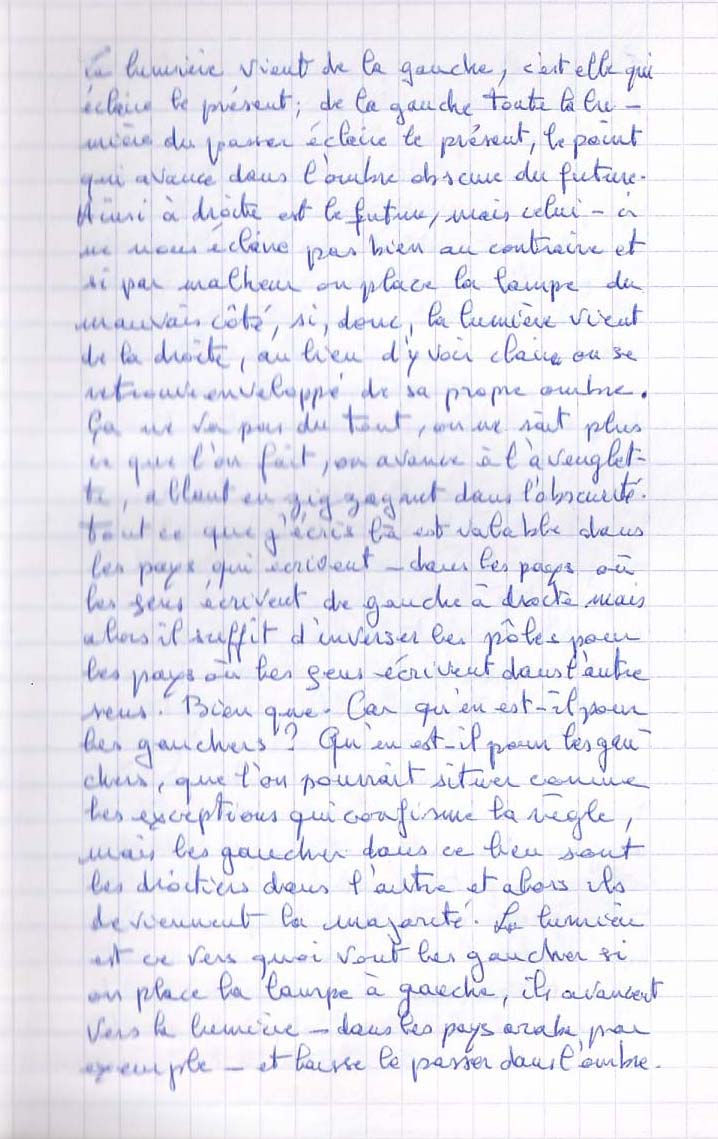 La lumière vient de la gauche, c'est elle qui
éclaire le présent ; de la gauche toute la lu-
mière du passer éclaire le présent, le point
qui avance dans l'ombre obscure du future.
Ainsi à droite est le future, mais celui-ci
ne nous éclaire pas bien au contraire et
si par malheur on place la lampe du
mauvais côté, si, donc, la lumière vient
de la droite, au lieu d'y voir claire on se
retrouve enveloppé de sa propre ombre.
Ça ne va pas du tout, on ne sait plus
ce que l'on fait, on avance à l'aveuglet-
te, allant en zigzagant dans l'obscurité.
tout ce que j'écris là est valable dans
les pays qui écrivent - dans les pays où
les gens écrivent de gauche à droite mais
alors il suffit d'inverser les pôles pour
les pays où les gens écrivent dans l'autre
sens. Bien que. Car qu'en est-il pour
les gauchers ? Qu'en est-il pour les gau-
chers, que l'on pourrait situer comme
les exceptions qui confirme la règle,
mais les gaucher dans ce lieu sont
les droitiers dans l'autre et alors ils
deviennent la majorité. La lumière
est ce vers quoi vont les gaucher si
on place la lampe à gauche, ils avancent
vers la lumière - dans les pays arabe, par
exemple - et laisse le passer dans l'ombre.